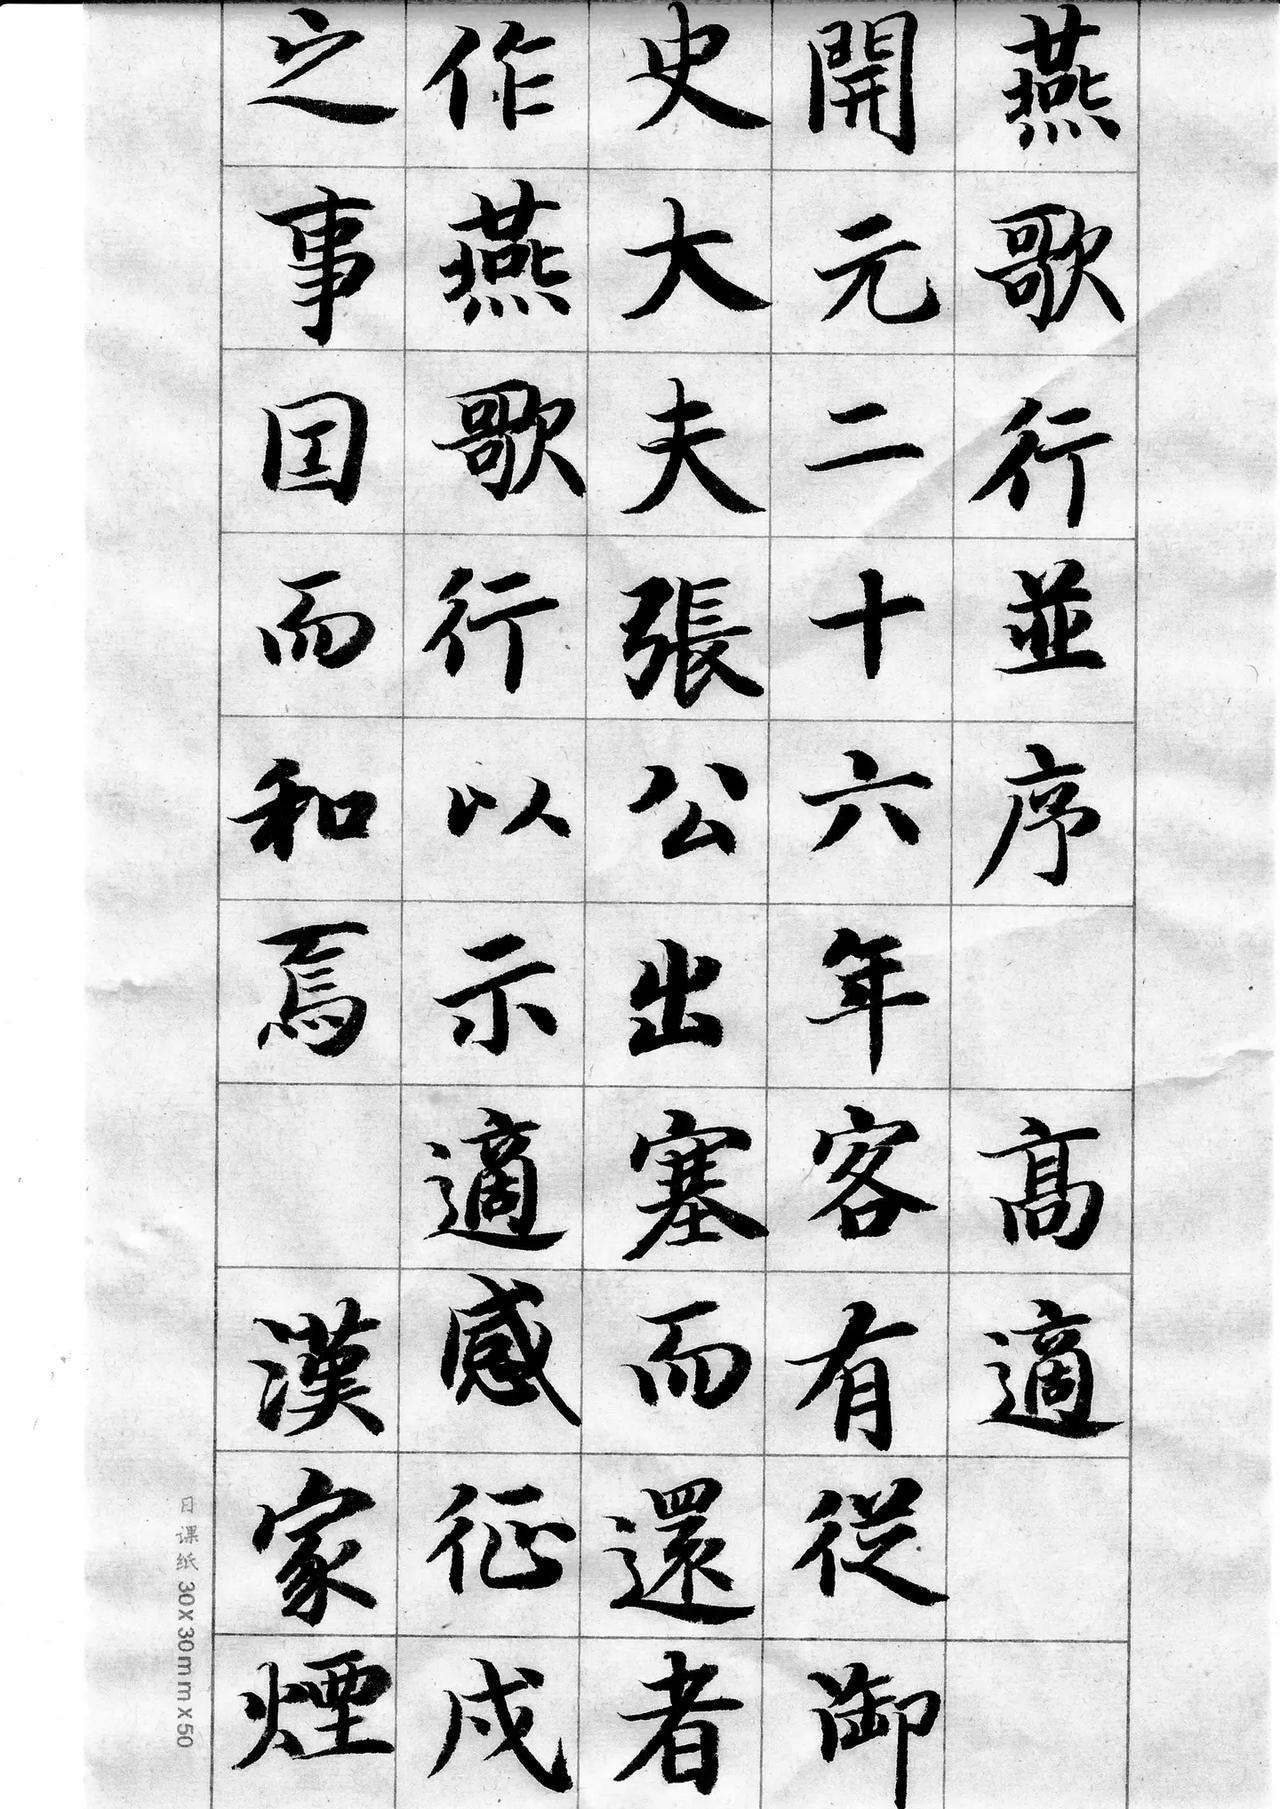 燕歌行並序 高適
開元二十六年客有從御
史大夫張公出塞而還者
作燕歌行以示適感征戍
之事因而和焉 漢家煙
日课纸 30x30mmx50